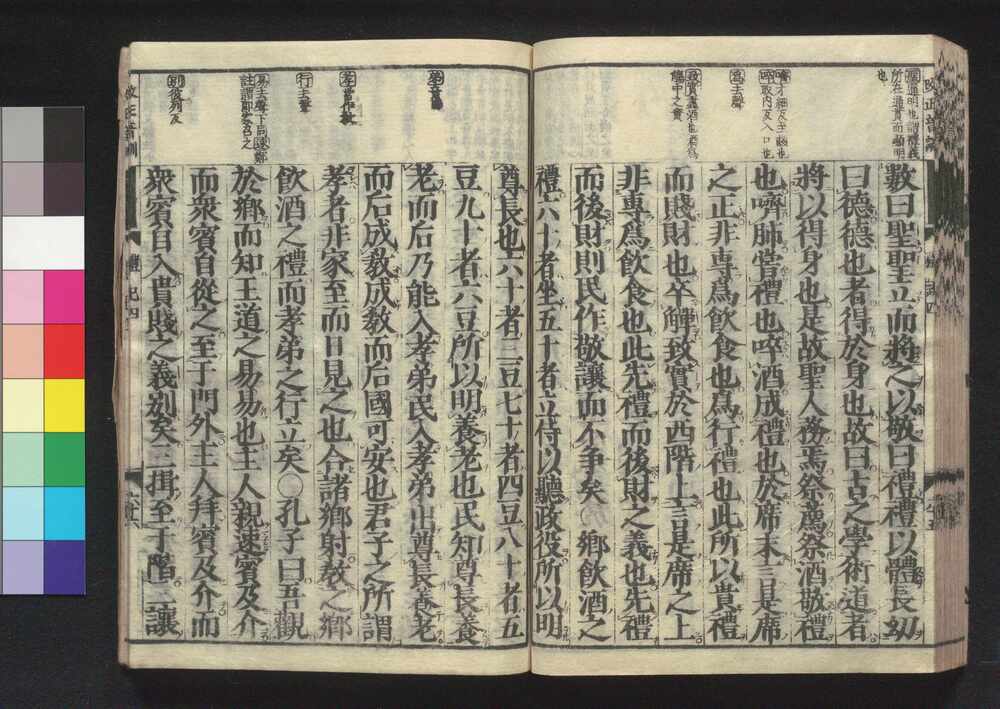 數曰聖聖立而將之以敬曰禮禮以體長幼
曰德德也者得於身也故曰古之學術道者
將以得身也是故聖人務焉祭薦祭酒敬禮
也嚌肺嘗禮也啐酒成禮也於席末言是席
之正非專爲飮食也爲行禮也此所以貴禮
而賤財也卒觶致實於西階上言是席之上
非專爲飮食也此先禮而後財之義也先禮
而後財則民作敬讓而不爭矣○鄕飮酒之
禮六十者坐五十者立侍以聽政役所以明
尊長也六十者三豆七十者四豆八十者五
豆九十者六豆所以明養老也民知尊長養
老而后乃能入孝弟民入孝弟出尊長養老
而后成敎成敎而后國可安也君子之所謂
孝者非家至而日見之也合諸鄕射敎之鄕
飮酒之禮而孝弟之行立矣○孔子曰吾觀
於鄕而知王道之易易也主人親速賓及介
而衆賓自從之至于門外主人拜賓及介而
衆賓自入貴賤之義別矣三揖至于階三讓
爲去聲
弟音悌
孝當作敎
行去聲
別彼列反
改正音訓
禮記四